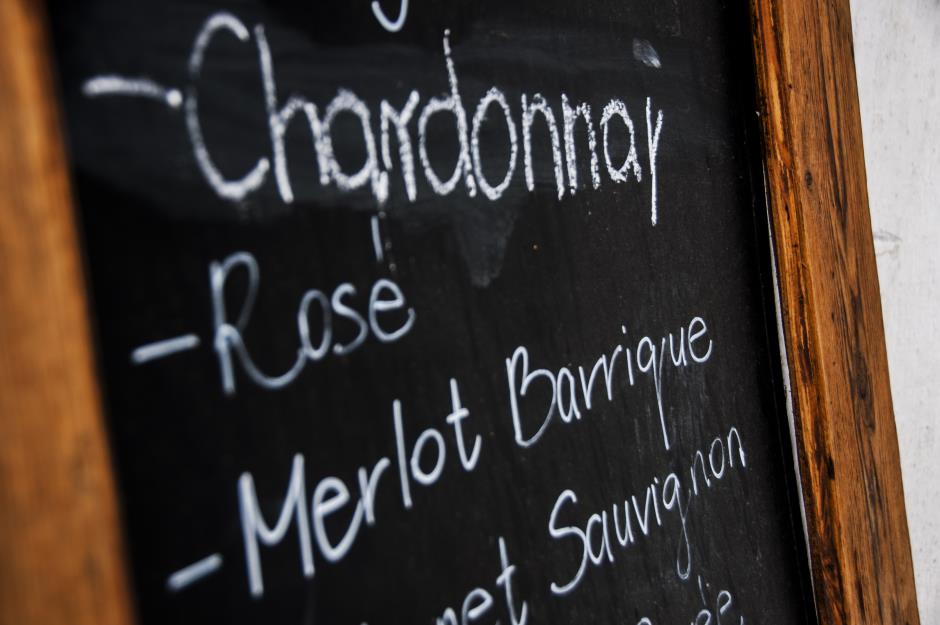 - Chardonnay
- Rosé
- Merlot Barrique
net Sauvignon